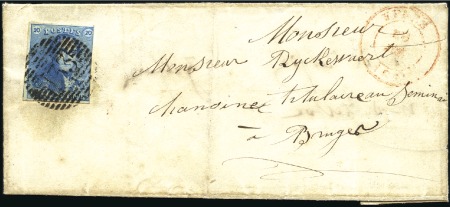 POSTES
20 20
Monsieur
Monsieur Ryckewaert
Chanoine titulaire au Seminai
à Bruges